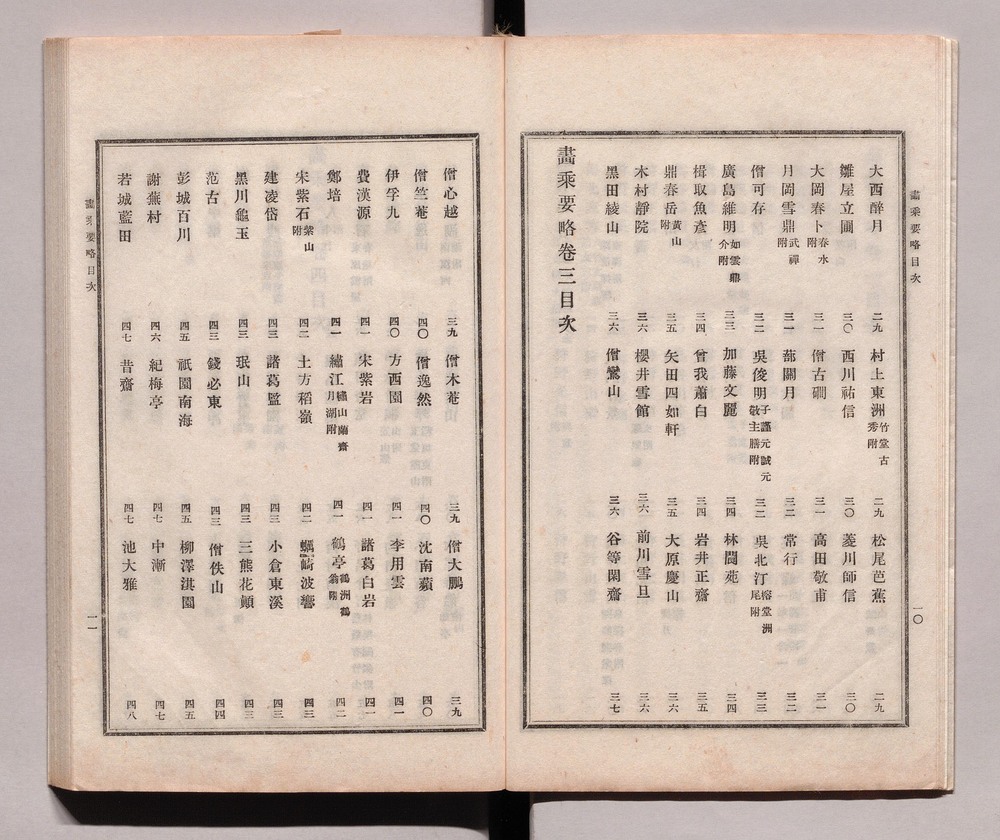 畵乘要略目次
一〇
大西醉月 二九 村上東洲 竹堂古秀附 二九 松尾芭蕉 二九
雛屋立圃 三〇 西川祐信 三〇 菱川師信 三〇
大岡春卜 春水附 三一 僧古礀 三一 高田敬甫 三一
月岡雪鼎 武禪附 三一 蔀關月 三二 常行 三二
僧可存 三二 吳俊明 子謹元誠元敬主膳附 三二 吳北汀 榕堂洲尾附 三三
廣島維明 如雲鼎介附 三三 加藤文麗 三四 林閬苑 三四
楫取魚彥 三四 曾我蕭白 三四 岩井正齋 三五
鼎春岳 黃山附 三五 矢田四如軒 三五 大原慶山 三六
木村靜院 三六 櫻井雪館 三六 前川雪旦 三六
黑田綾山 三六 僧鸞山 三六 谷等閑齋 三七
畵乘要略卷三目次
僧心越 三九 僧木菴 三九 僧大鵬 三九
僧竺菴 四〇 僧逸然 四〇 沈南蘋 四〇
伊孚九 四〇 方西園 四一 李用雲 四一
費漢源 四一 宋紫岩 四一 諸葛白岩 四一
鄭培 四一 繡江 繡山繭齋月湖附 四一 鶴亭 鶴洲鶴翁附 四二
宋紫石 紫山附 四二 土方稻嶺 四二 蠣崎波響 四三
建凌岱 四三 諸葛監 四三 小倉東溪 四三
黑川龜玉 四三 珉山 四三 三熊花顚 四三
范古 四三 錢必東 四三 僧佚山 四四
彭城百川 四五 祇園南海 四五 柳澤淇園 四五
謝蕪村 四六 紀梅亭 四七 中漸 四七
若城藍田 四七 昔齋 四七 池大雅 四八
畵乘要略目次
一一